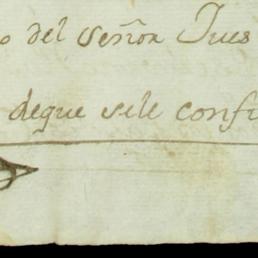 o del señor Jues
deque sele confi